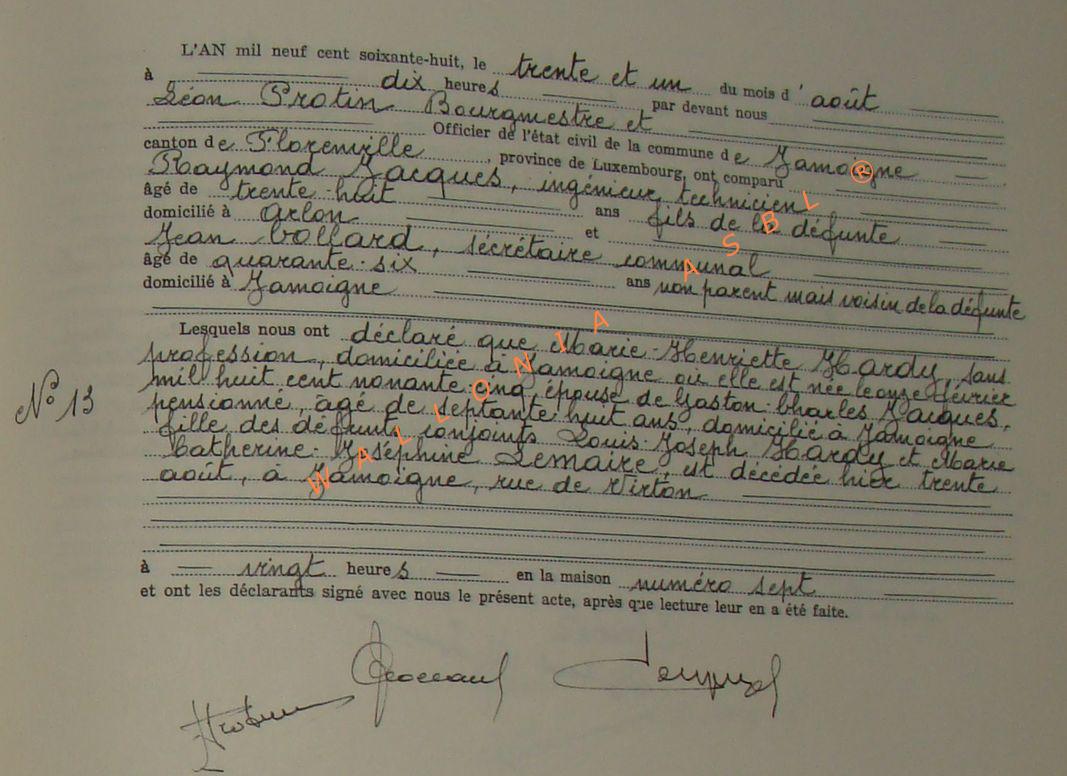 L'AN mil neuf cent soixante-huit, le trente et un du mois d'août
à dix heures par devant nous
Léon Protin Bourgmestre et
Officier de l'état civil de la commune de Jamoigne
canton de Florenville, province de Luxembourg, ont comparu
Raymond Jacques, ingénieur technicien
âgé de trente-huit ans fils de la défunte
domicilié à Arlon et
Jean Collard, secrétaire communal
âgé de quarante-six ans non parent mais voisin de la défunte
domicilié à Jamoigne
Lesquels nous ont déclaré que Marie-Henriette Hardy, sans
profession, domiciliée à Jamoigne où elle est née le onze février
mil huit cent nonante-cinq, épouse de Gaston-Charles Jacques,
pensionné, âgé de septante-huit ans, domicilié à Jamoigne
fille des défunts conjoints Louis-Joseph Hardy et Marie
Catherine-Joséphine Lemaire, est décédée hier trente
août, à Jamoigne, rue de Virton
N° 13
à vingt heures en la maison numéro sept
et ont les déclarants signé avec nous le présent acte, après que lecture leur en a été faite.
WALLONIA ASBL ®